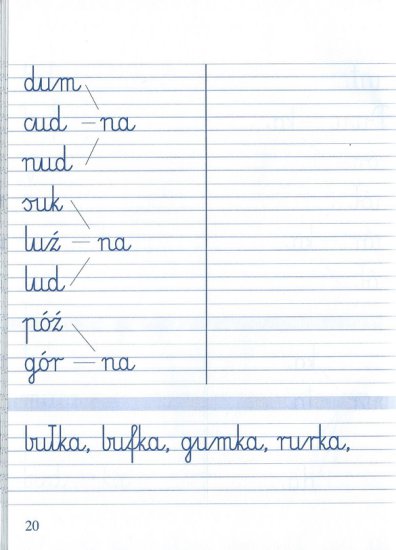 dum
cud – na
nud
suk
luź – na
lud
póź
gór – na
bułka, bufka, gumka, rurka,
20